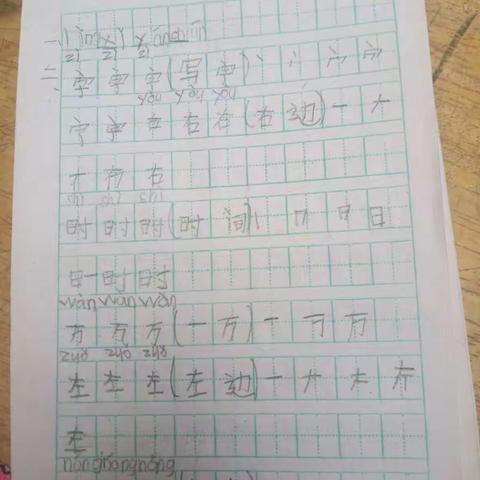 zì zì zì
二、字字字(写字)丶丷宀宀
yòu yòu yòu
宁字右右右(右边)一ナ
ナ右右
shí shí shí
时时时(时间)丨冂日日
日一时时
wàn wàn wàn
万万万(一万)一丆万
zuǒ zuǒ zuǒ
左左左(左边)一ナ左左
左